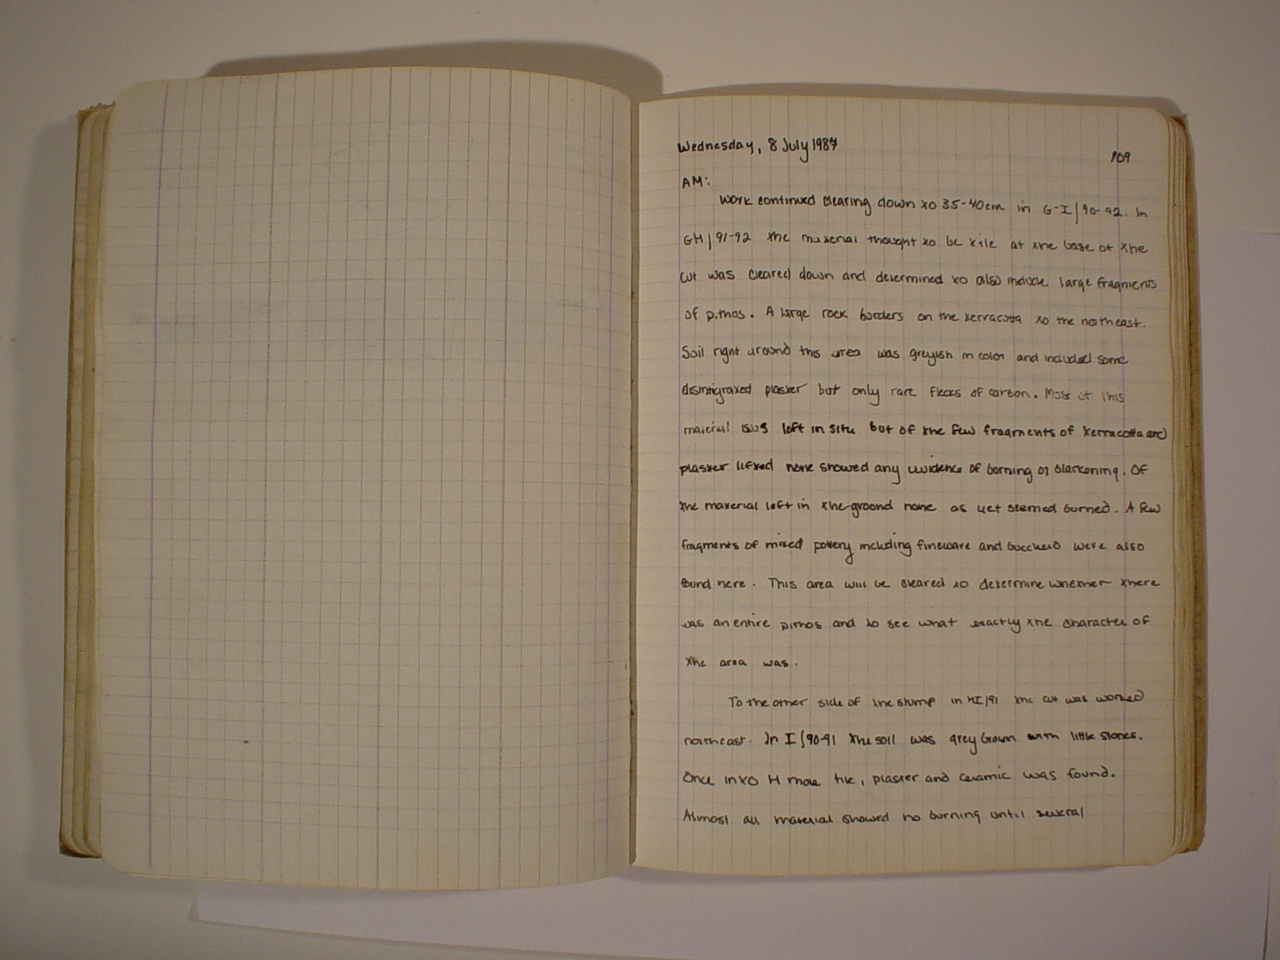 Wednesday, 8 July 1987
109
AM:
Work continued clearing down to 35-40cm in G-I/90-92. In
GH/91-92 the material thought to be tile at the base of the
cut was cleared down and determined to also include large fragments
of pithos. A large rock borders on the terracotta to the northeast.
Soil right around this area was greyish in color and included some
disintigrated plaster but only rare flecks of carbon. Most of this
material was left in situ but of the few fragments of terracotta and
plaster lifted none showed any evidence of burning or blackening. Of
the material left in the ground none as yet seemed burned. A few
fragments of mixed pottery including fineware and bucchero were also
found here. This area will be cleared to determine whether there
was an entire pithos and to see what exactly the character of
the area was.
To the other side of the stump in HI/91 the cut was worked
northeast. In I/90-91 the soil was grey brown with little stones.
Once into H more tile, plaster and ceramic was found.
Almost all material showed no burning until several